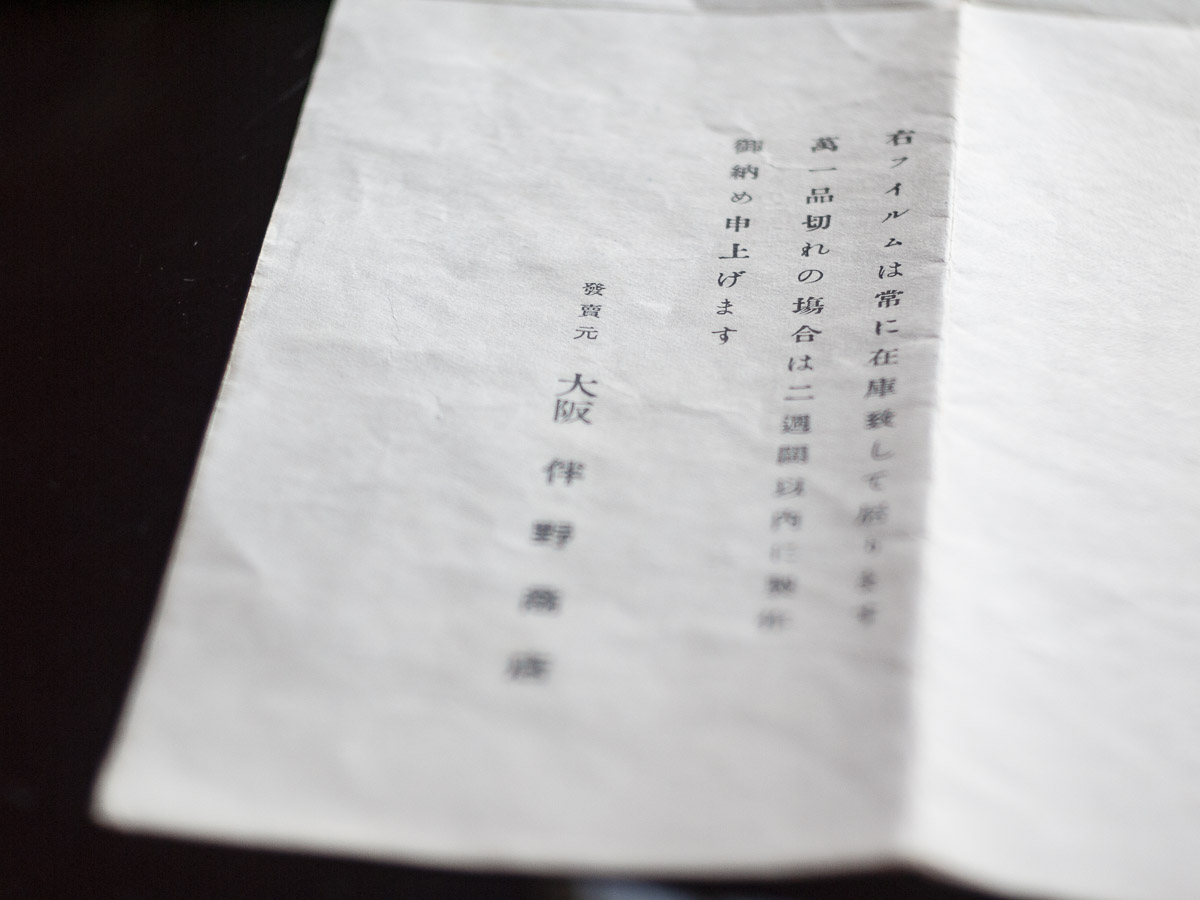 右フイルムは常に在庫致して居ります
萬一品切れの場合は二週間以内に
御納め申上げます
發賣元 大阪 伴野